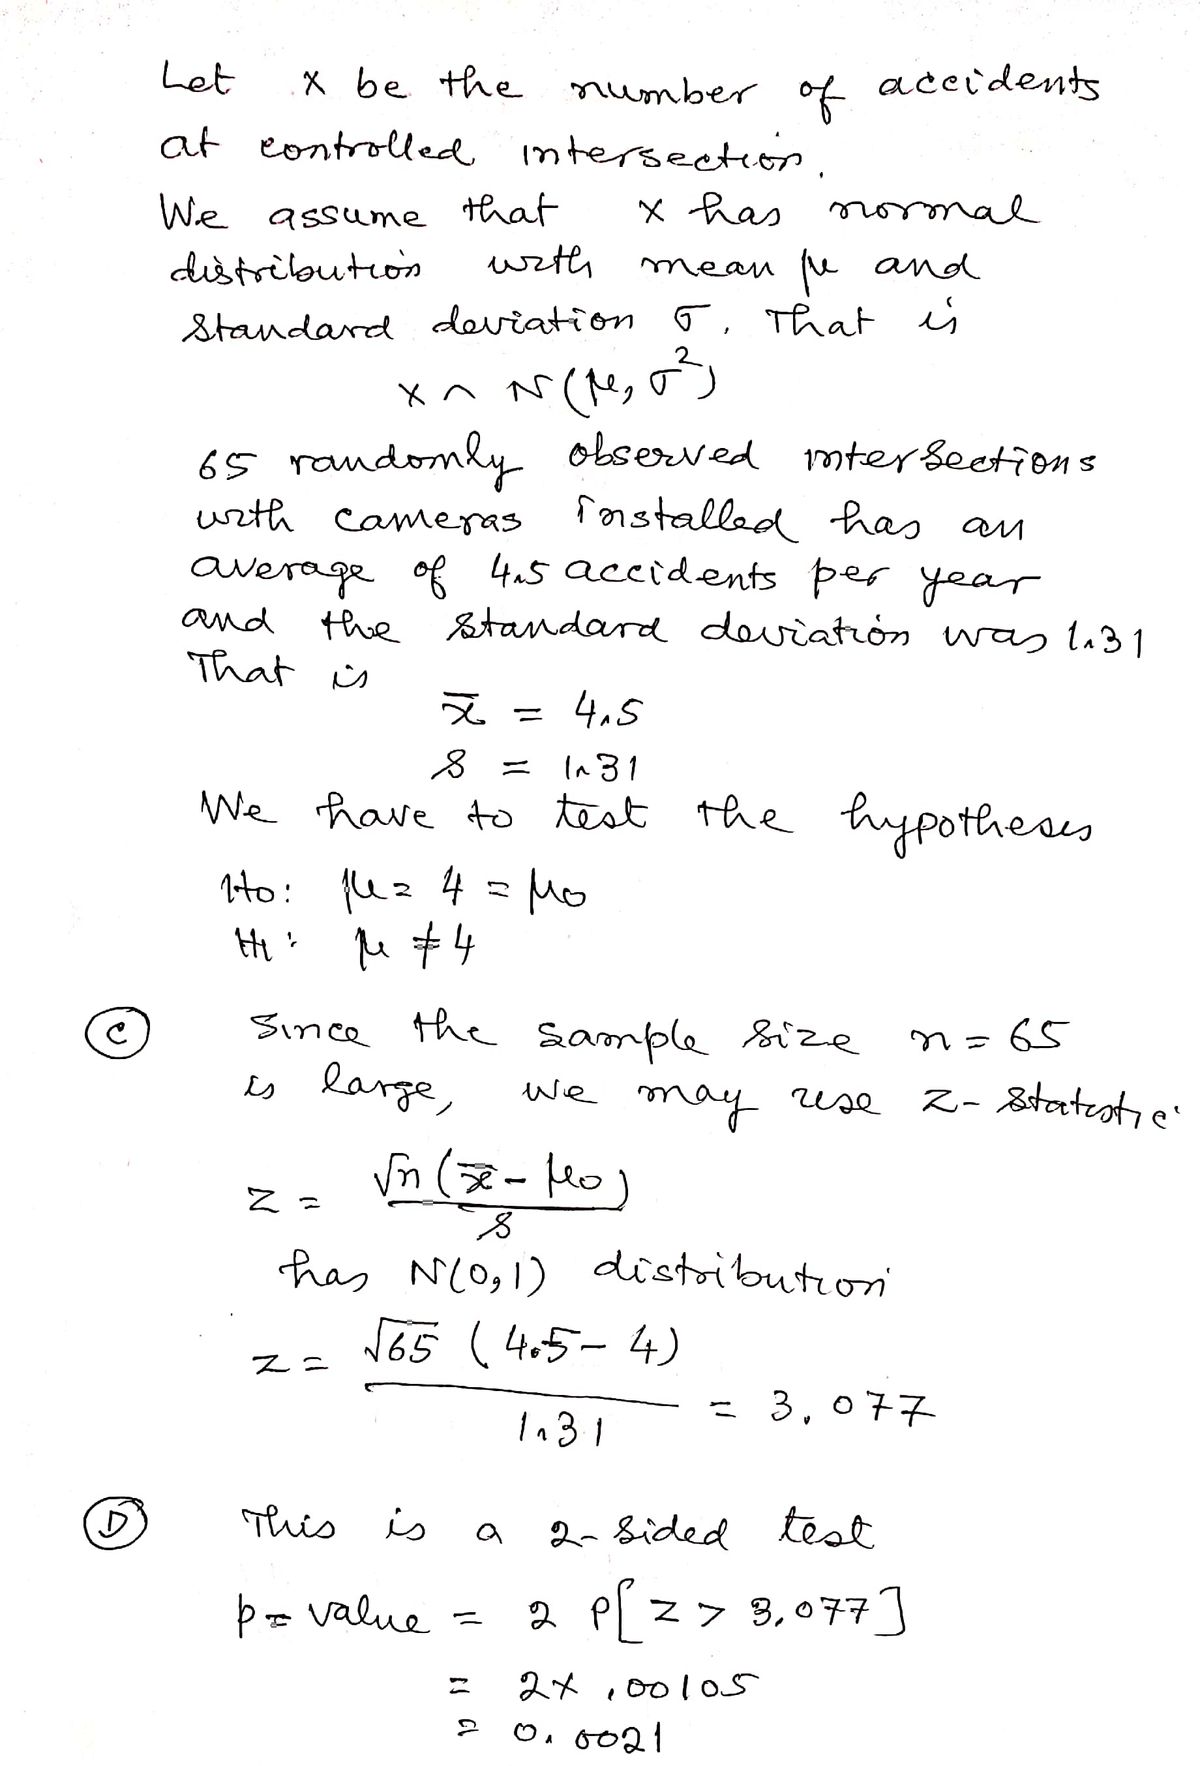 Let x be the number of accidents
at controlled intersection.
We assume that x has normal
distribution with mean μ and
standard deviation σ. That is
x ~ N(μ, σ²)
65 randomly observed intersections
with cameras installed has an
average of 4.5 accidents per year
and the standard deviation was 1.31
That is
x̄ = 4.5
s = 1.31
We have to test the hypotheses
H0: μ = 4 = μ0
H1: μ ≠ 4
(C) Since the sample size n = 65
is large, we may use z- statistic
z = √n (x̄ - μ0) / s
has N(0,1) distribution
z = √65 (4.5 - 4) / 1.31 = 3.077
(D) This is a 2-sided test
p-value = 2 P[z > 3.077]
= 2× .00105
= 0.0021